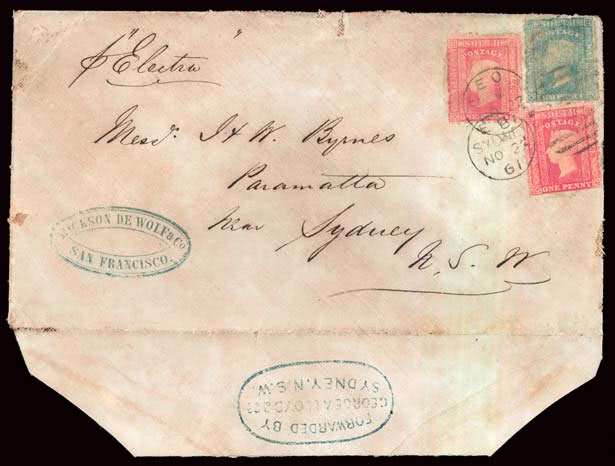 p "Electra"
Messrs. J & W. Byrnes
Paramatta
near Sydney
N. S. W
DICKSON DE WOLF & Co
SAN FRANCISCO.
SOUTH
POSTAGE
SOUTH
POSTAGE
SOUTH
POSTAGE
ONE PENNY
SYDNEY
NO 22
61
FORWARDED BY
GEORGE A LLOYD & Co
SYDNEY. N.S.W.